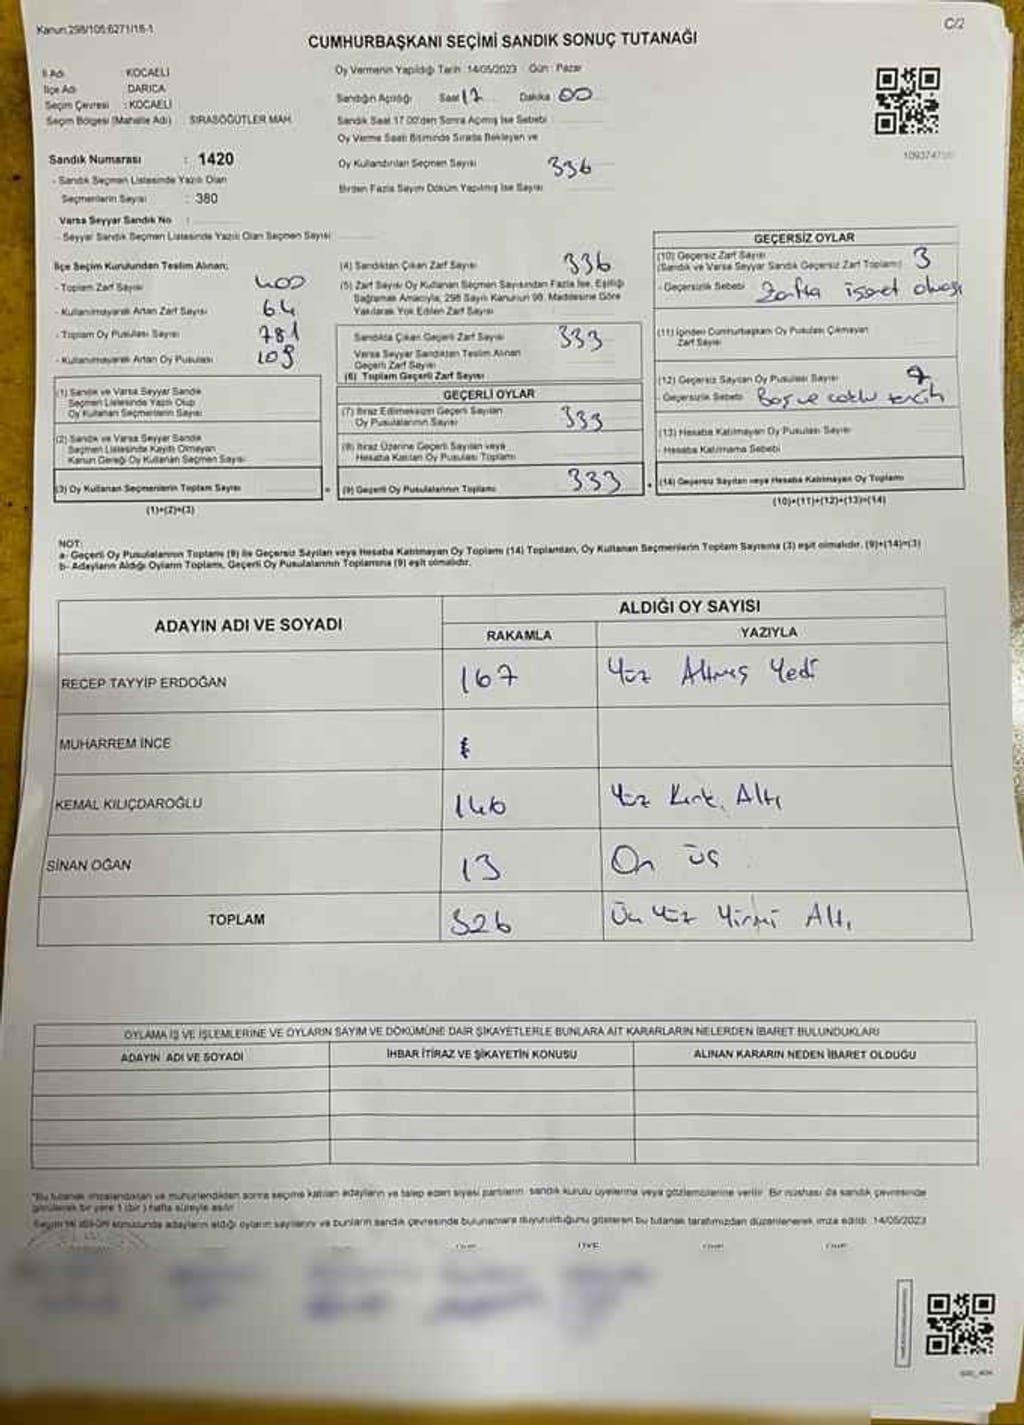 Kanun:298/105:6271/18-1
C/2
CUMHURBAŞKANI SEÇİMİ SANDIK SONUÇ TUTANAĞI
İl Adı : KOCAELİ
İlçe Adı DARICA
Seçim Çevresi : KOCAELİ
Seçim Bölgesi (Mahalle Adı) : SIRASÖĞÜTLER MAH.
Sandık Numarası : 1420
- Sandık Seçmen Listesinde Yazılı Olan
Seçmenlerin Sayısı : 380
Varsa Seyyar Sandık No :
- Seyyar Sandık Seçmen Listesinde Yazılı Olan Seçmen Sayısı
Oy Vermenin Yapıldığı Tarih :14/05/2023 Gün : Pazar
Sandığın Açıldığı Saat 17 Dakika 00
Sandık Saat 17.00'den Sonra Açılmış İse Sebebi
Oy Verme Saati Bitiminde Sırada Bekleyen ve
Oy Kullandırılan Seçmen Sayısı 336
Birden Fazla Sayım Döküm Yapılmış İse Sayısı
İlçe Seçim Kurulundan Teslim Alınan;
- Toplam Zarf Sayısı 400
- Kullanılmayarak Artan Zarf Sayısı 64
- Toplam Oy Pusulası Sayısı 781
- Kullanılmayarak Artan Oy Pusulası
(1) Sandık ve Varsa Seyyar Sandık
Seçmen Listesinde Yazılı Olup
Oy Kullanan Seçmenlerin Sayısı
(2) Sandık ve Varsa Seyyar Sandık
Seçmen Listesinde Kayıtlı Olmayan
Kanun Gereği Oy Kullanan Seçmen Sayısı
(3) Oy Kullanan Seçmenlerin Toplam Sayısı
(1)+(2)=(3)
(4) Sandıktan Çıkan Zarf Sayısı 336
(5) Zarf Sayısı Oy Kullanan Seçmen Sayısından Fazla İse, Eşitliği
Sağlamak Amacıyla, 298 Sayılı Kanunun 98. Maddesine Göre
Yakılarak Yok Edilen Zarf Sayısı
Sandıkta Çıkan Geçerli Zarf Sayısı 333
Varsa Seyyar Sandıktan Teslim Alınan
Geçerli Zarf Sayısı
(6) Toplam Geçerli Zarf Sayısı
GEÇERLİ OYLAR
(7) İtiraz Edilmeksizin Geçerli Sayılan
Oy Pusulalarının Sayısı 333
(8) İtiraz Üzerine Geçerli Sayılan veya
Hesaba Katılan Oy Pusulası Toplamı
(9) Geçerli Oy Pusulalarının Toplamı 333
GEÇERSİZ OYLAR
(10) Geçersiz Zarf Sayısı 3
(Sandık ve Varsa Seyyar Sandık Geçersiz Zarf Toplamı)
- Geçersizlik Sebebi Zarfta işaret olması
(11) İçinden Cumhurbaşkanı Oy Pusulası Çıkmayan
Zarf Sayısı
(12) Geçersiz Sayılan Oy Pusulası Sayısı 7
- Geçersizlik Sebebi Boş ve çoklu tercih
(13) Hesaba Katılmayan Oy Pusulası Sayısı
- Hesaba Katılmama Sebebi
(14) Geçersiz Sayılan veya Hesaba Katılmayan Oy Toplamı
(10)+(11)+(12)+(13)=(14)
NOT:
a- Geçerli Oy Pusulalarının Toplamı (9) ile Geçersiz Sayılan veya Hesaba Katılmayan Oy Toplamı (14) Toplamları, Oy Kullanan Seçmenlerin Toplam Sayısına (3) eşit olmalıdır. (9)+(14)=(3)
b- Adayların Aldığı Oyların Toplamı, Geçerli Oy Pusulalarının Toplamına (9) eşit olmalıdır.
ADAYIN ADI VE SOYADI
ALDIĞI OY SAYISI
RAKAMLA YAZIYLA
RECEP TAYYİP ERDOĞAN 167 Yüz Altmış Yedi
MUHARREM İNCE
KEMAL KILIÇDAROĞLU 146 Yüz Kırk Altı
SİNAN OĞAN 13 On üç
TOPLAM 326 Üç Yüz Yirmi Altı
OYLAMA İŞ VE İŞLEMLERİNE VE OYLARIN SAYIM VE DÖKÜMÜNE DAİR ŞİKAYETLERLE BUNLARA AİT KARARLARIN NELERDEN İBARET BULUNDUKLARI
ADAYIN ADI VE SOYADI İHBAR İTİRAZ VE ŞİKAYETİN KONUSU ALINAN KARARIN NEDEN İBARET OLDUĞU
*Bu tutanak imzalandıktan ve mühürlendikten sonra seçime katılan adayların ve talep eden siyasi partilerin sandık kurulu üyelerine veya gözlemcilerine verilir. Bir nüshası da sandık çevresinde
görülecek bir yere 1 (bir) hafta süreyle asılır
sonucunda adayların aldığı oyların sayılarını ve bunların sandık çevresinde bulunanlara duyurulduğunu gösteren bu tutanak tarafımızdan düzenlenerek imza edildi. 14/05/2023
ÜYE